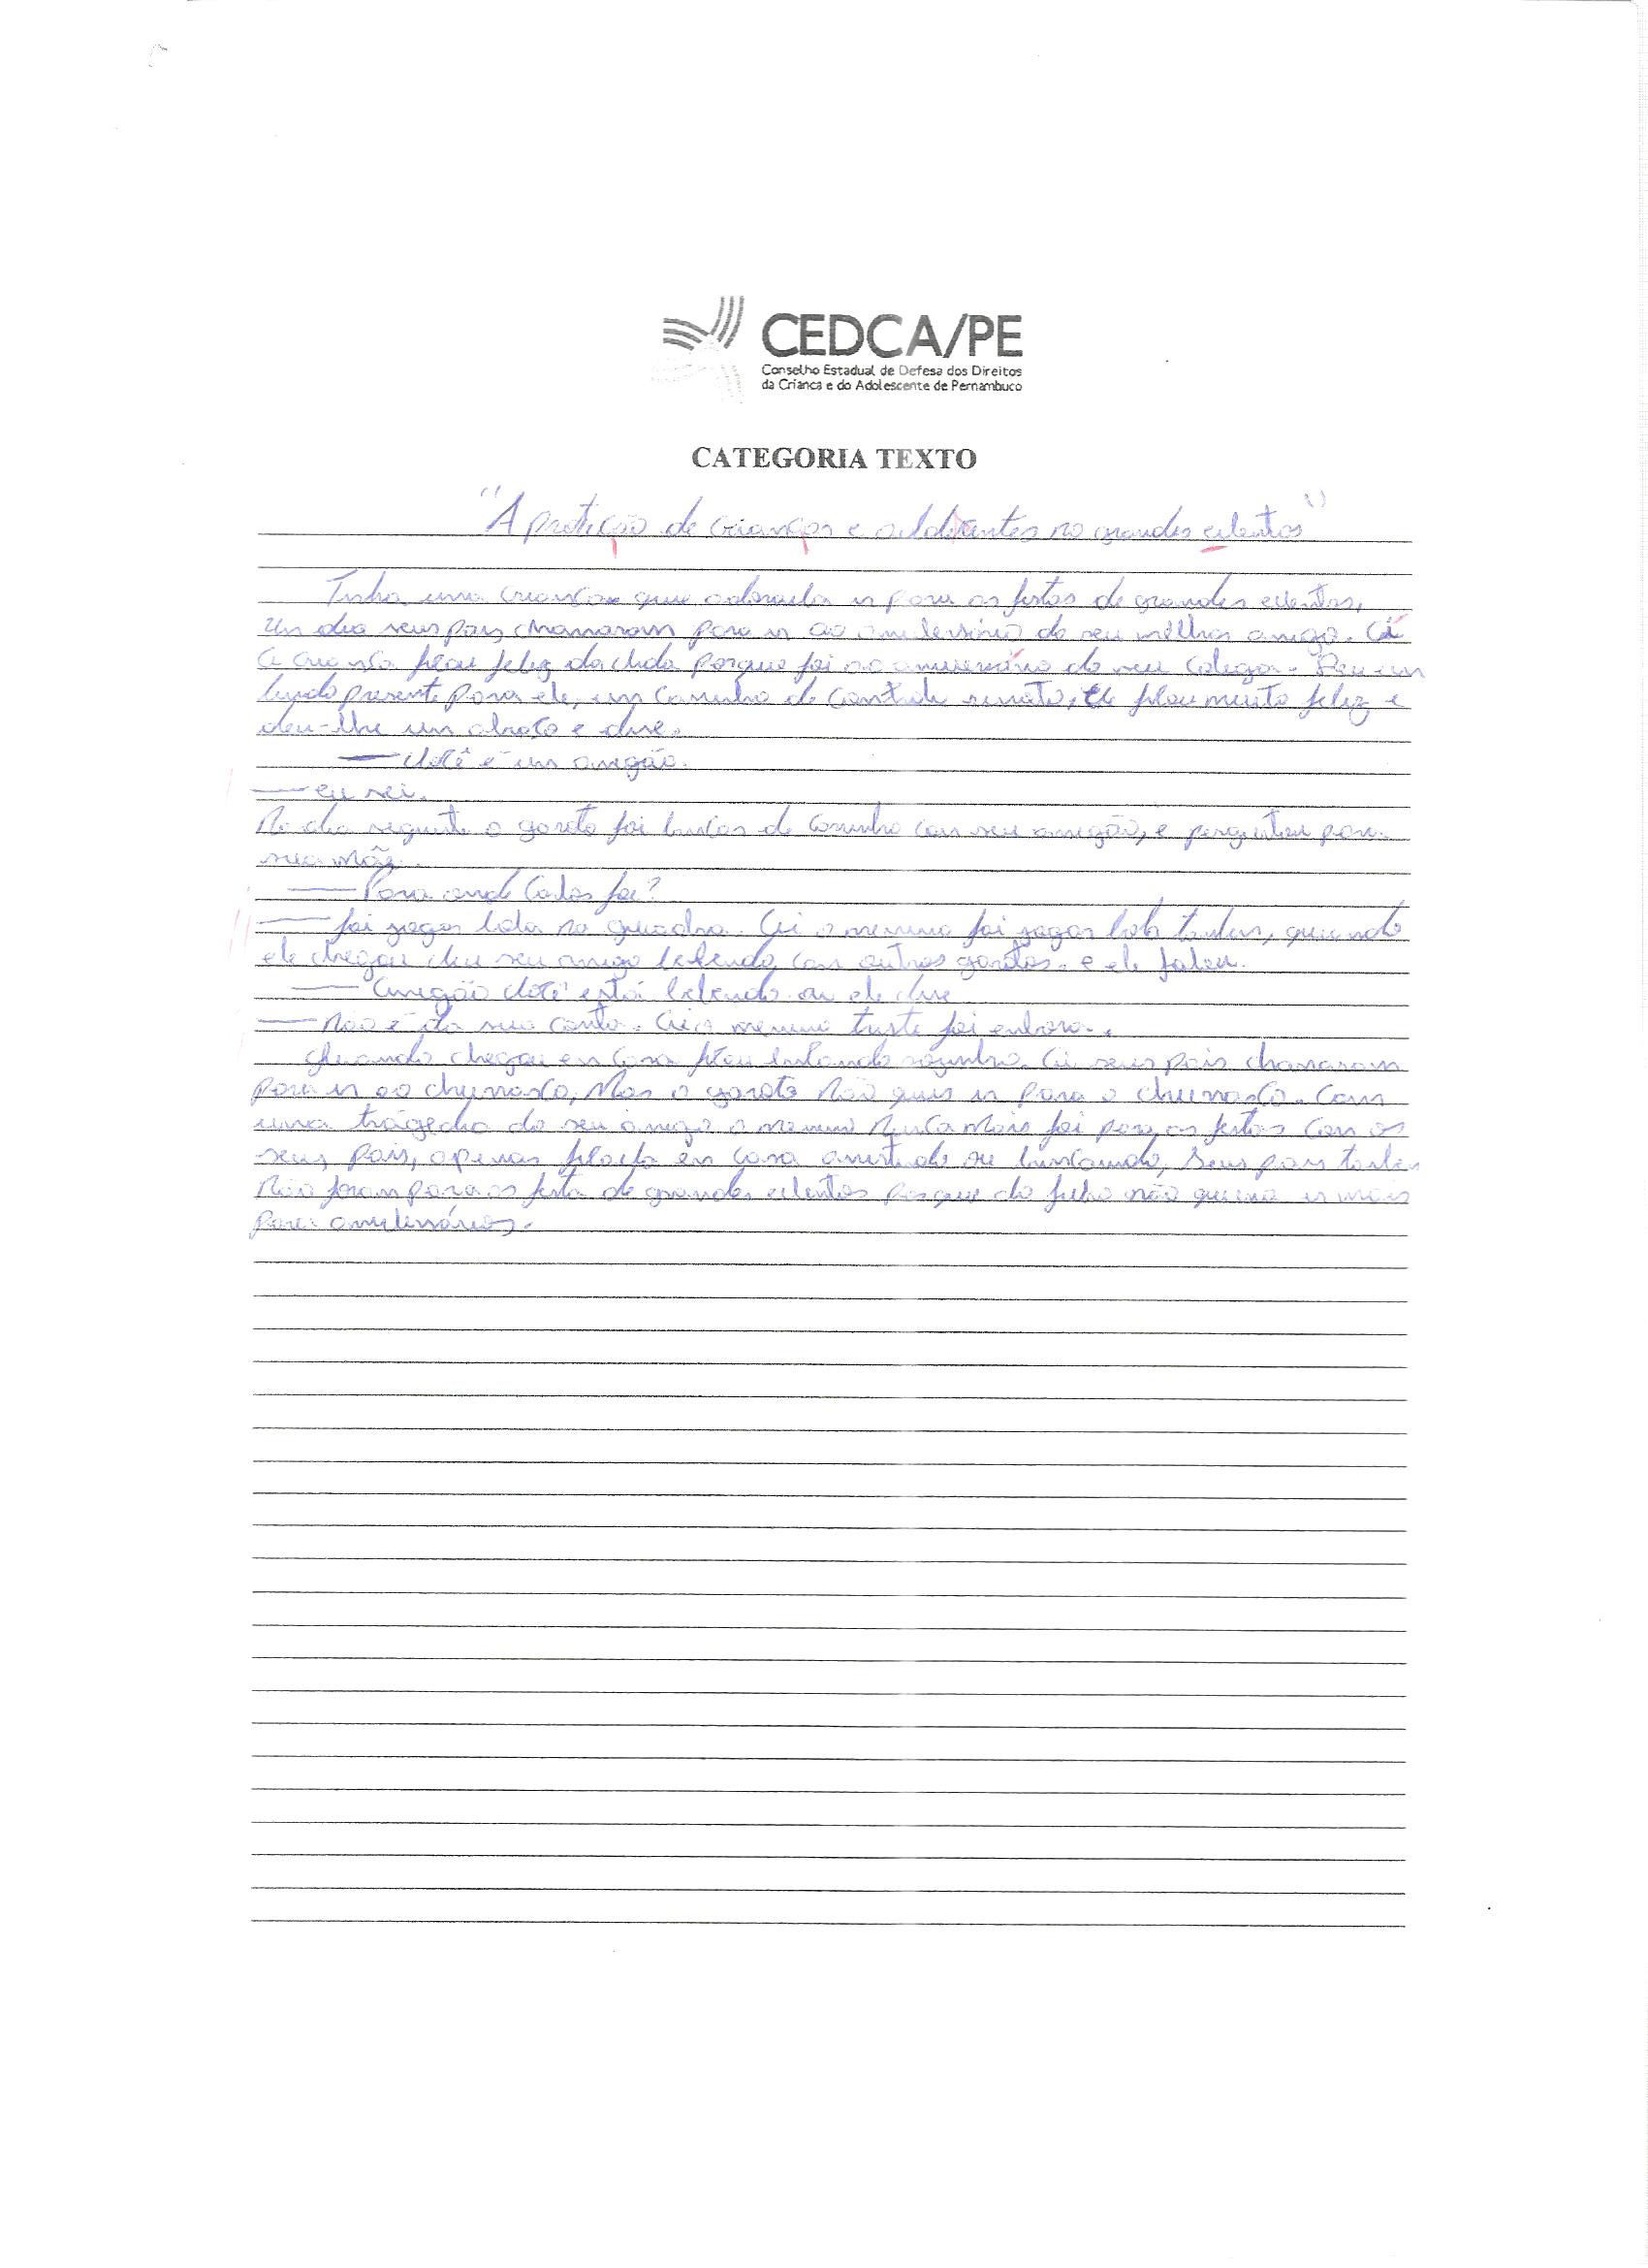 CEDCA/PE
Conselho Estadual de Defesa dos Direitos
da Criança e do Adolescente de Pernambuco
CATEGORIA TEXTO
"A proteção de crianças e adolescentes no grandes eventos"
Tinha uma criança que adorava ir para as festas de grandes eventos,
Um dia seus pais chamaram para ir ao aniversário do seu melhor amigo. Aí
a criança ficou feliz da vida porque foi ao aniversário do seu colega. Deu um
lindo presente para ele, um carrinho de controle remoto, ele ficou muito feliz e
deu-lhe um abraço e disse.
— Você é um amigão.
— eu sei.
No dia seguinte o garoto foi brincar de carrinho com seu amigão, e perguntou para
sua mãe.
— Para onde Carlos foi?
— foi jogar bola na quadra. Aí o menino foi jogar bola tambem, quando
ele chegou viu seu amigo bebendo com outros garotos. e ele falou.
— Amigão você está bebendo ele disse
— Não é da sua conta. Aí o menino triste foi embora.
Quando chegou em casa ficou brincando sozinho. Aí seus pais chamaram
para ir ao churrasco, Mas o garoto não quis ir para o churrasco. Com
uma tragedia do seu amigo o menino Nunca Mais foi para as festas com os
seus pais, apenas ficava em casa assistindo ou brincando, Seus pais tambem
Não foram para as festa de grandes eventos porque do filho não queria ir mais
para aniversários.